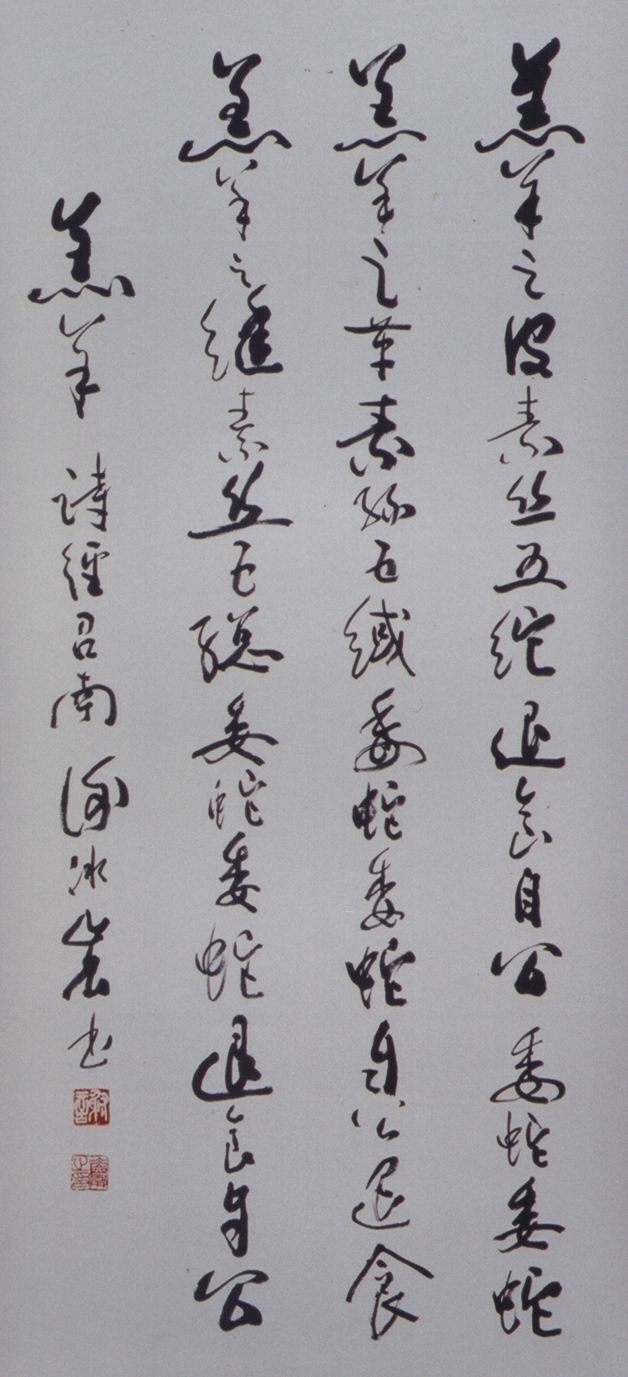 羔羊之皮素丝五紽退食自公委蛇委蛇
羔羊之革素絲五緎委蛇委蛇自公退食
羔羊之縫素丝五總委蛇委蛇退食自公
羔羊 詩經召南 謝冰岩书